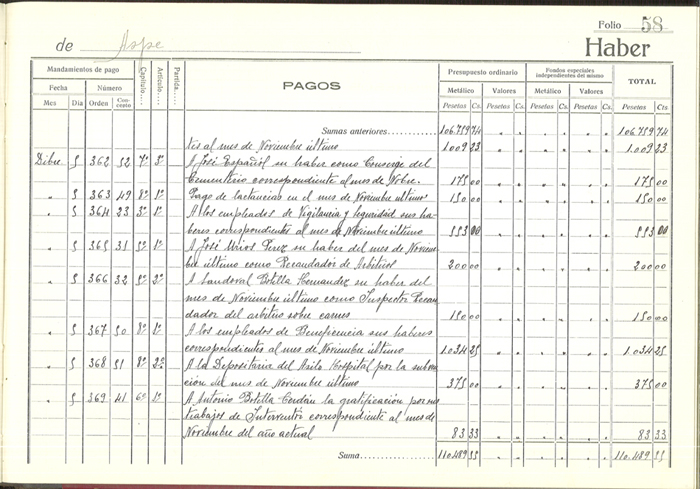 Folio 58
de Aspe Haber
Mandamientos de pago Capítulo.... Artículo.... Partida.... PAGOS Presupuesto ordinario Fondos especiales independientes del mismo TOTAL
Fecha Número Metálico Valores Metálico Valores
Mes Día Orden Concepto Pesetas Cs. Pesetas Cs. Pesetas Cs. Pesetas Cs. Pesetas Cts
Sumas anteriores 106.759 74 " " " " " " 106.759 74
tes al mes de Noviembre último 1.009 23 " " " " " " 1.009 23
Dibre 5 362 52 7º 3º A José Español su haber como Conserge del
Cementerio correspondiente al mes de Nobre. 175 00 " " " " " " 175 00
" 5 363 49 8º 1º Pago de lactancias en el mes de Noviembre último 150 00 " " " " " " 150 00
" 5 364 23 3º 1º A los empleados de Vigilancia y Seguridad sus ha-
beres correspondientes al mes de Noviembre último 553 00 " " " " " " 553 00
" 5 365 31 5º 1º A José Mirós Perez su haber del mes de Noviem-
bre último como Recaudador de Arbitrios 200 00 " " " " " " 200 00
" 5 366 32 5º 2º A Sandoval Botella Hernandez su haber del
mes de Noviembre último como Inspector Recau-
dador del arbitrio sobre carnes 150 00 " " " " " " 150 00
" 5 367 50 8º 1º A los empleados de Beneficencia sus haberes
correspondientes al mes de Noviembre último 1.034 25 " " " " " " 1.034 25
" 5 368 51 8º 2º A la Depositaria del Asilo Hospital por la subven-
ción del mes de Noviembre último 375 00 " " " " " " 375 00
" 5 369 41 6º 1º A Antonio Botella Cerdán la gratificación por sus
trabajos de Interventor correspondiente al mes de
Noviembre del año actual 83 33 " " " " " " 83 33
Suma 110.489 55 " " " " " " 110.489 55